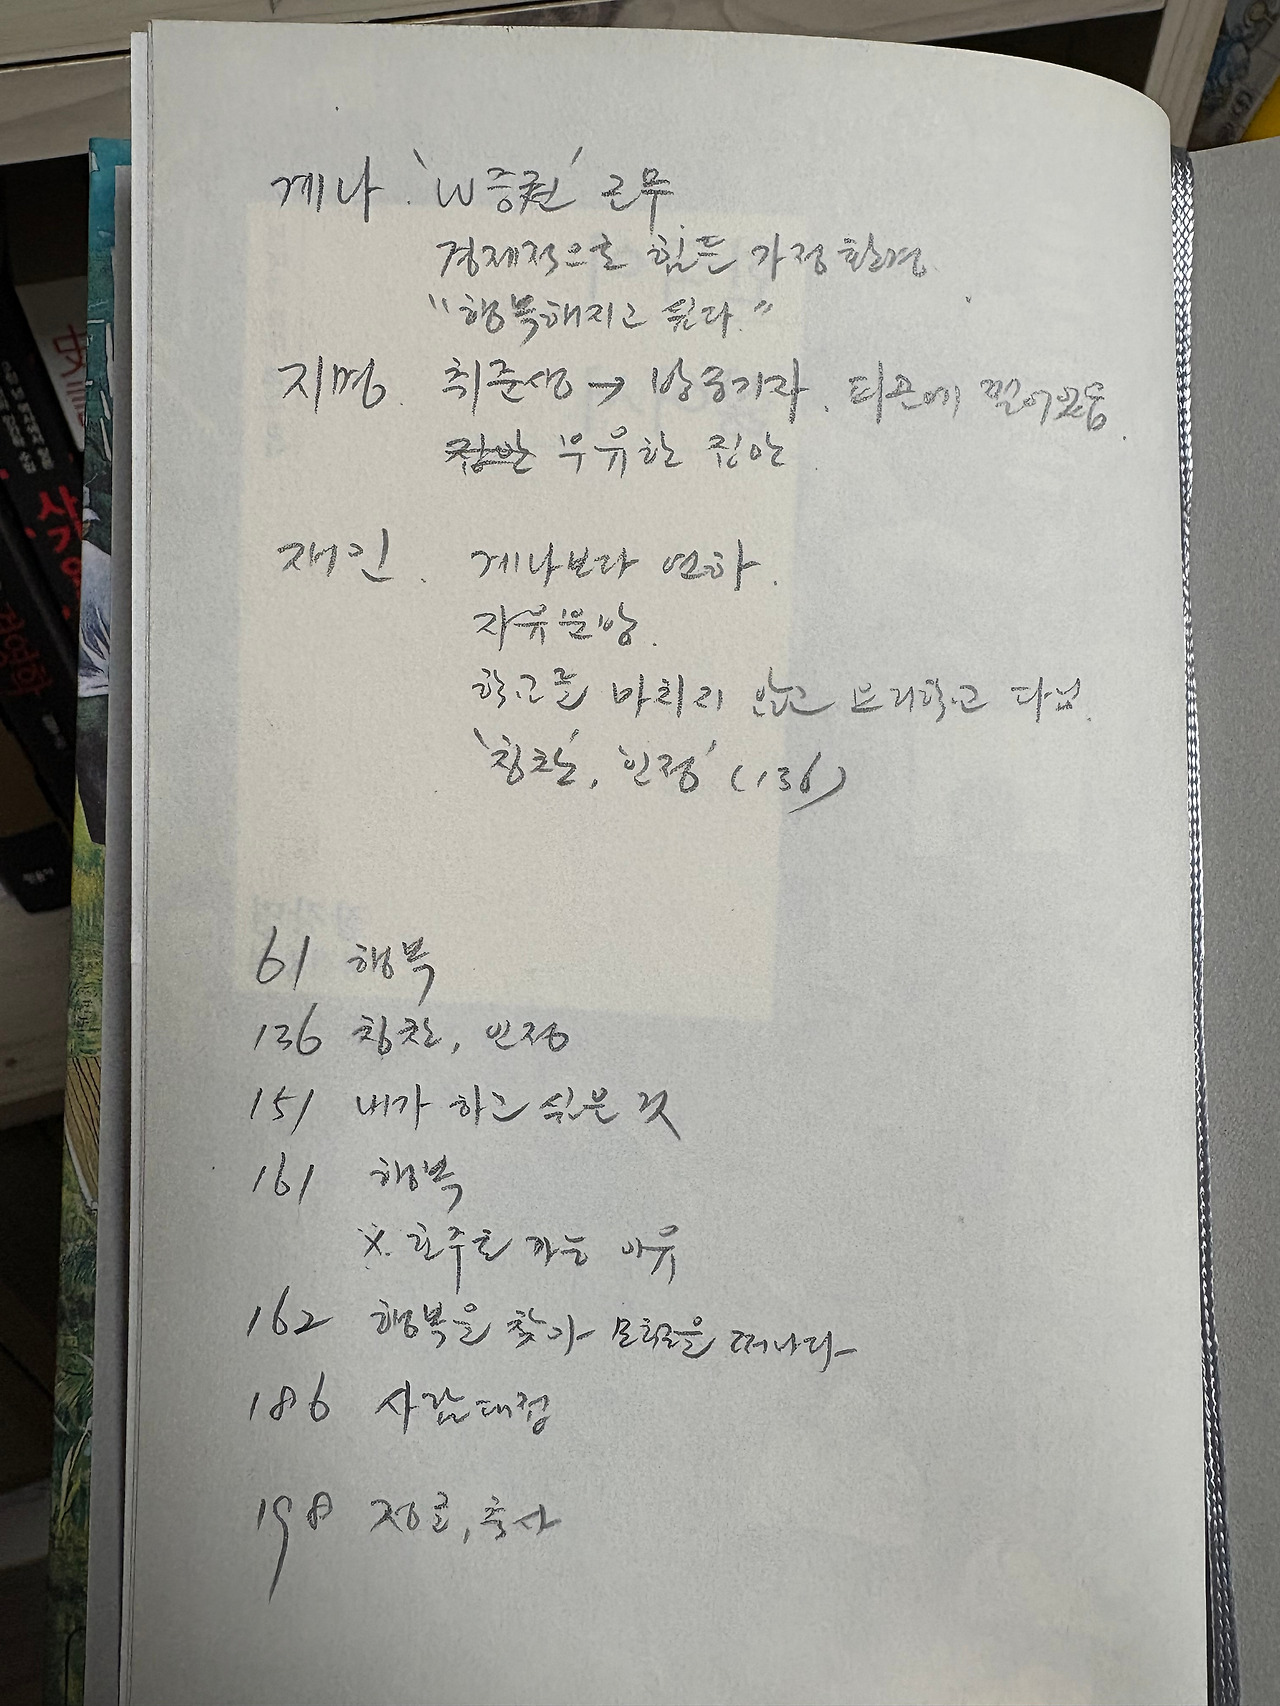 계나. 'W증권' 근무
경제적으로 힘든 가정환경
"행복해지고 싶다."
지명. 취준생 → 방송기자. 피곤에 찔어있음.
집안 부유한 집안.
재인. 계나보다 연하.
자유분방.
학교를 마치지 않고 요리학교 다님.
'칭찬', '인정' (136)
61 행복
136 칭찬, 인정
151 내가 하고 싶은 것
161 행복
※ 호주로 가는 이유
162 행복을 찾아 모험을 떠나다
186 사람대접
198